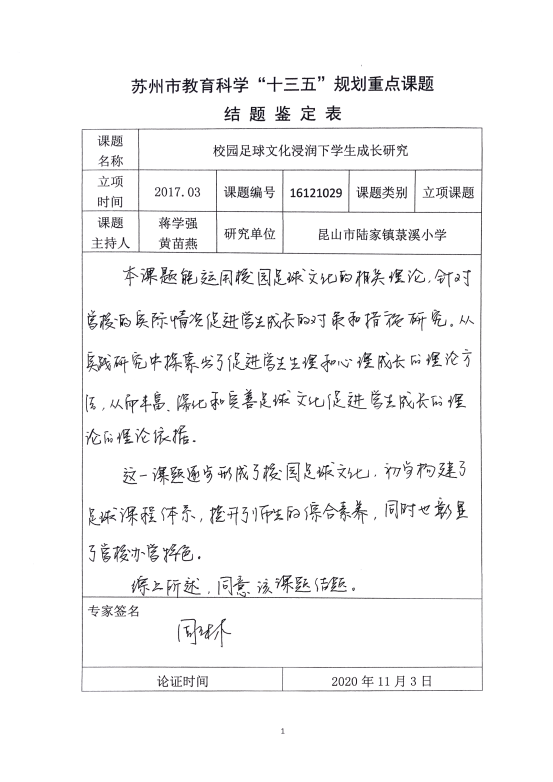 苏州市教育科学“十三五”规划重点课题
结 题 鉴 定 表
课题
名称
校园足球文化浸润下学生成长研究
立项
时间
2017.03
课题编号
16121029
课题类别
立项课题
课题
主持人
蒋学强
黄苗燕
研究单位
昆山市陆家镇菉溪小学
本课题能运用校园足球文化的相关理论，针对
学校的实际情况促进学生成长的对策和措施研究。从
实践研究中探索出了促进学生生理和心理成长的理论方
法，从而丰富、深化和完善足球文化促进学生成长的理
论的理论依据。
这一课题逐步形成了校园足球文化，初步构建了
足球课程体系，提升了师生的综合素养，同时也彰显
了学校办学特色。
综上所述，同意该课题结题。
专家签名
论证时间
2020 年 11 月 3 日
1